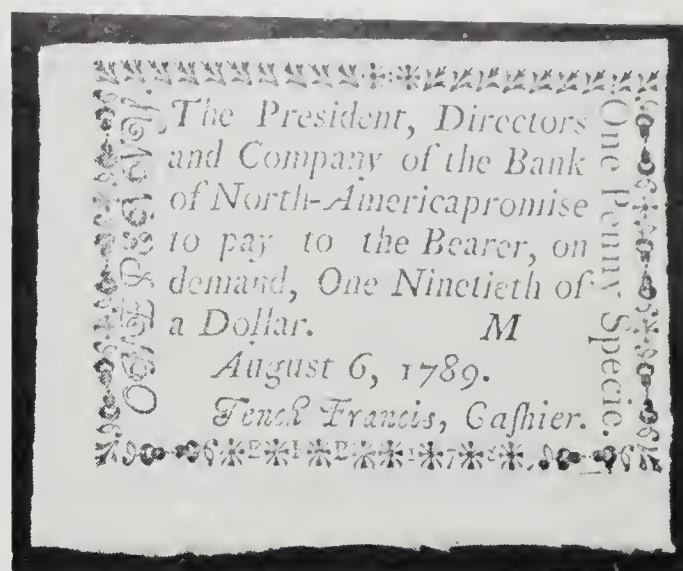 The President, Directors
and Company of the Bank
of North-America promise
to pay to the Bearer, on
demand, One Ninetieth of
a Dollar. M
August 6, 1789.
Tench Francis, Caſhier.
One Penny Specie.